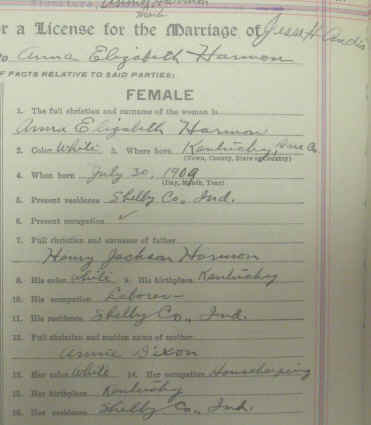 or a License for the Marriage of Jesse H. Andis
to Anna Elizabeth Harmon
OF FACTS RELATIVE TO SAID PARTIES:
FEMALE
1. The full christian and surname of the woman is
Anna Elizabeth Harmon
2. Color White 3. Where born Kentucky, Co.
(Town, County, State or Country)
4. When born July 30, 1909
(Day, Month, Year)
5. Present residence Shelby Co., Ind.
6. Present occupation ✓
7. Full christian and surname of father
Henry Jackson Harmon
8. His color White 9. His birthplace Kentucky
10. His occupation Laborer
11. His residence Shelby Co., Ind.
12. Full christian and maiden name of mother
Annie Dixon
13. Her color White 14. Her occupation Housekeeping
15. Her birthplace Kentucky
16. Her residence Shelby Co., Ind.